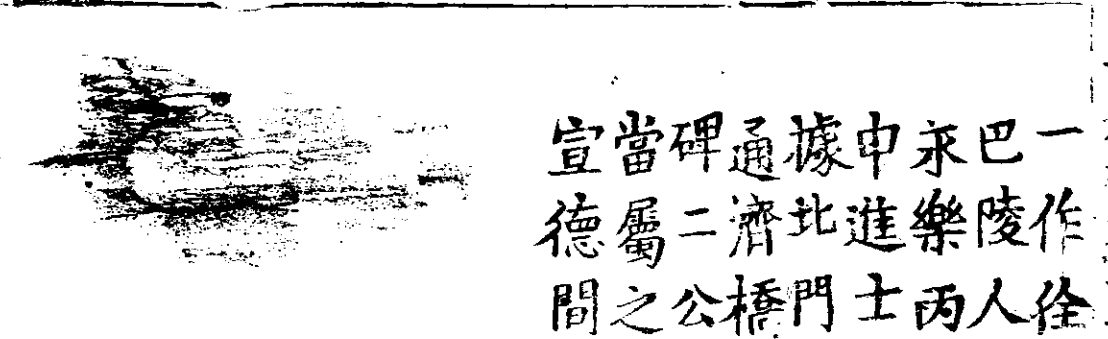 一作徐
巴陵人
永樂丙
申進士
據北門
通濟橋
碑二公
當屬之
宣德間